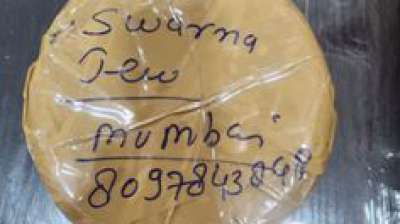 Swarna
Jew
mumbai
8097843048